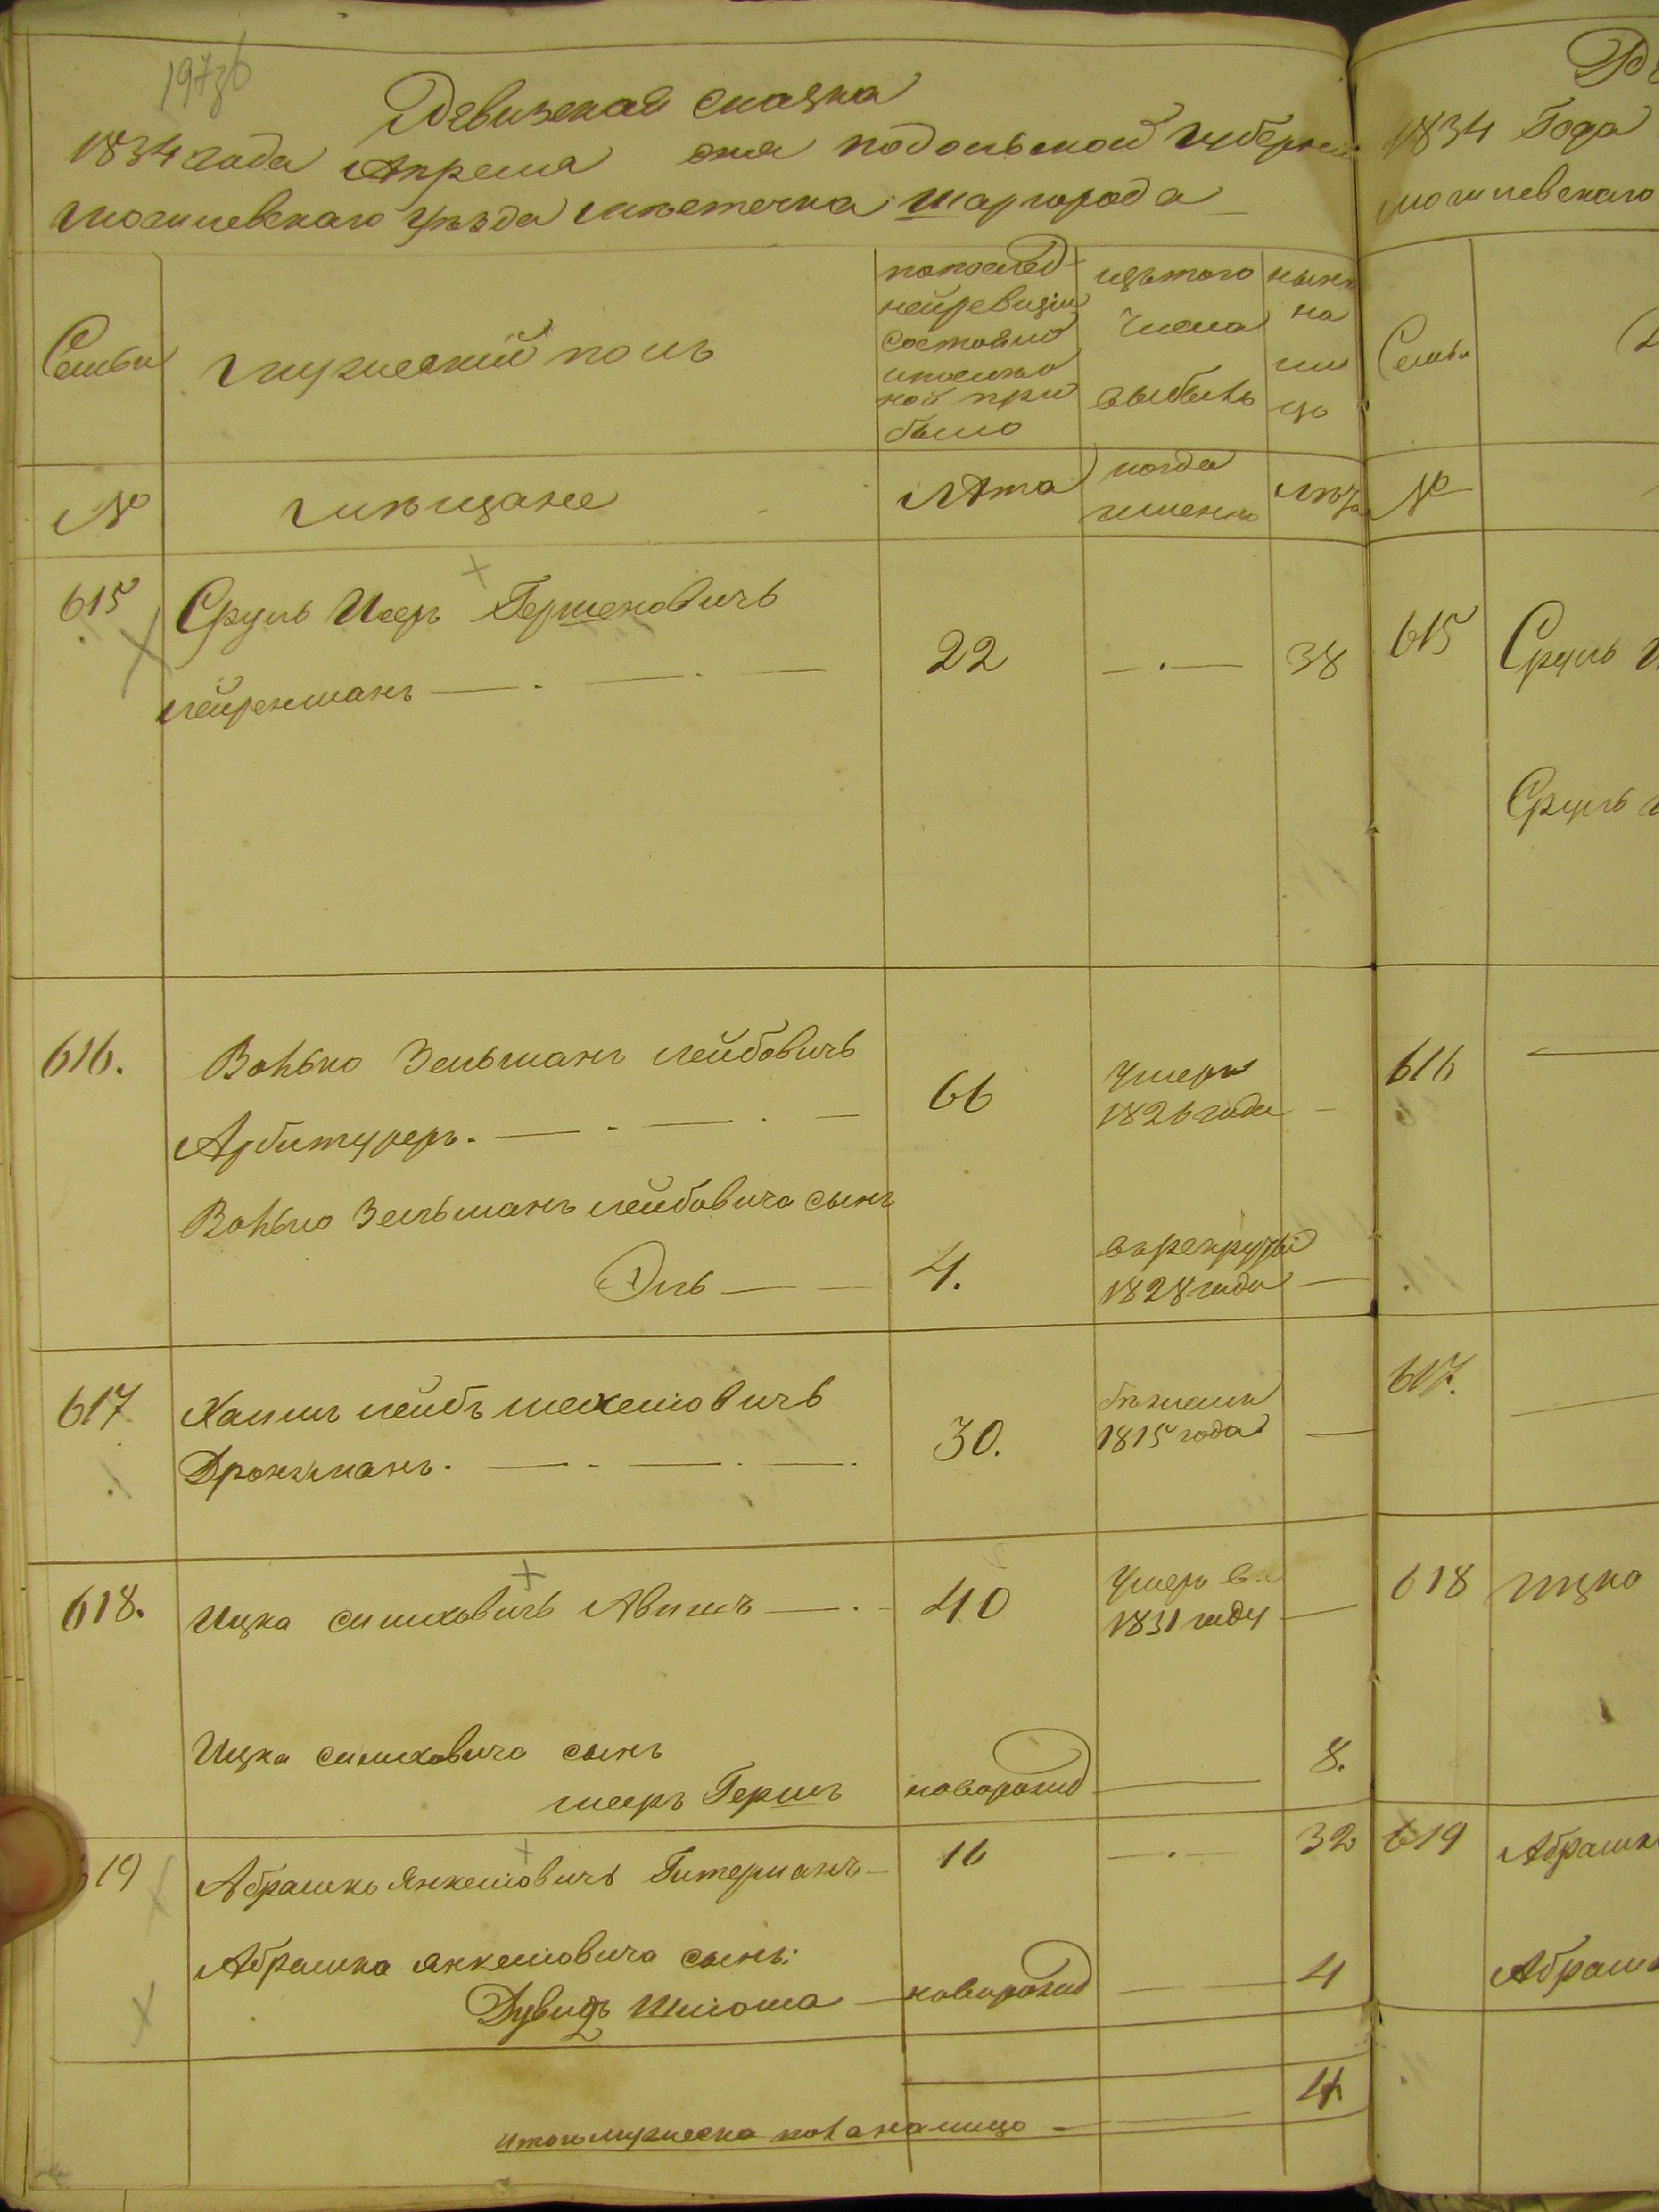 197
Ревизская сказка
1834 года Апреля дня подольской губернии
могилевскаго уезда местечка шаргорода
Семьи
мужеский полъ
попослед
ней ревизіи
состояло
и после
ной при
было
изътого
числа
выбыло
ныне
на
ли
цо
№
мещане
Лета
когда
именно
лета
615
Сруль Иосъ Гершковичъ
лейренманъ
22
38
616.
Волько Зельманъ лейбовичъ
Арбитуреръ.
66
Умеръ
1826 года
Волько Зельманъ лейбовича сынъ
Эль
4.
въ рекруты
1828 года
617
Хаимъ лейбъ мехелювичъ
Дронзманъ.
30.
бежалъ
1815 года
618.
Ицка симховичъ Авишъ
40
Умеръ в
1831 году
Ицка симховича сынъ
мееръ Гершъ
новорожд
8.
619
Абрашко Янкелювичъ Гитерманъ
16
32
Абрашка янкелювича сынъ:
Дувидъ Шлома
новорожд
4
итого мужеска пола налицо
4
1834 Года
могилевскаго
Семьи
№
615
Сруль
Сруль
616
617.
618
Ицко
619
Абрашк
Абрашк